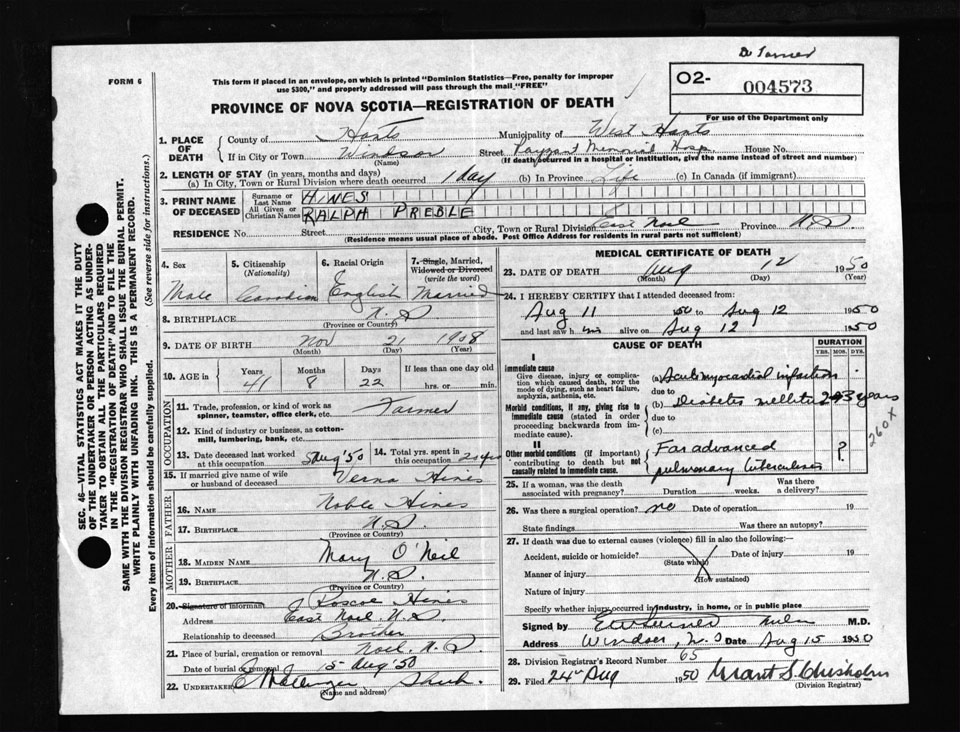 Dr Turner
FORM 6
This form if placed in an envelope, on which is printed "Dominion Statistics—Free, penalty for improper
use $300," and properly addressed will pass through the mail "FREE"
PROVINCE OF NOVA SCOTIA—REGISTRATION OF DEATH
O2- 004573
For use of the Department only
SEC. 46—VITAL STATISTICS ACT MAKES IT THE DUTY
OF THE UNDERTAKER OR PERSON ACTING AS UNDER-
TAKER TO OBTAIN ALL THE PARTICULARS REQUIRED
IN THE "REGISTRATION OF DEATH" AND TO FILE THE
SAME WITH THE DIVISION REGISTRAR WHO SHALL ISSUE THE BURIAL PERMIT.
WRITE PLAINLY WITH UNFADING INK. THIS IS A PERMANENT RECORD.
Every item of information should be carefully supplied. (See reverse side for instructions.)
1. PLACE OF DEATH
County of Hants Municipality of West Hants
If in City or Town Windsor Street Payzant Memorial Hosp. House No.
(Name) (If death occurred in a hospital or institution, give the name instead of street and number)
2. LENGTH OF STAY (in years, months and days)
(a) In City, Town or Rural Division where death occurred 1 day (b) In Province Life (c) In Canada (if immigrant)
3. PRINT NAME OF DECEASED
Surname or Last Name HINES
All Given or Christian Names RALPH PREBLE
RESIDENCE No. Street City, Town or Rural Division East Noel Province N.S.
(Residence means usual place of abode. Post Office Address for residents in rural parts not sufficient)
4. Sex Male
5. Citizenship (Nationality) Canadian
6. Racial Origin English
7. Single, Married, Widowed or Divorced (write the word) Married
8. BIRTHPLACE N.S.
(Province or Country)
9. DATE OF BIRTH Nov 21 1908
(Month) (Day) (Year)
10. AGE in Years 41 Months 8 Days 22 If less than one day
hrs. or min.
OCCUPATION
11. Trade, profession, or kind of work as spinner, teamster, office clerk, etc. Farmer
12. Kind of industry or business, as cotton-mill, lumbering, bank, etc.
13. Date deceased last worked at this occupation Aug '50
14. Total yrs. spent in this occupation
15. If married give name of wife or husband of deceased Verna Hines
FATHER
16. NAME Noble Hines
17. BIRTHPLACE N.S.
(Province or Country)
MOTHER
18. MAIDEN NAME Mary O'Neil
19. BIRTHPLACE N.S.
(Province or Country)
20. Signature of informant Roscoe Hines
Address East Noel, N.S.
Relationship to deceased Brother
21. Place of burial, cremation or removal Noel, N.S.
Date of burial or removal 15 Aug '50
22. UNDERTAKER
(Name and address)
MEDICAL CERTIFICATE OF DEATH
23. DATE OF DEATH Aug 12 1950
(Month) (Day) (Year)
24. I HEREBY CERTIFY that I attended deceased from:
Aug 11 1950 to Aug 12 1950
and last saw him alive on Aug 12 1950
CAUSE OF DEATH
DURATION
YRS. MOS. DYS.
I
Immediate cause
Give disease, injury or complication which caused death, NOT the mode of dying, such as heart failure, asphyxia, asthenia, etc.
(a) Acute myocardial infarction
due to
Morbid conditions, if any, giving rise to immediate cause (stated in order proceeding backwards from immediate cause).
(b) Diabetes mellitus 2-3 years
due to
(c)
260X
II
Other morbid conditions (if important) contributing to death but not causally related to immediate cause.
Far advanced pulmonary tuberculosis ?
25. If a woman, was the death associated with pregnancy? Duration weeks. Was there a delivery?
26. Was there a surgical operation? no Date of operation 19
State findings Was there an autopsy?
27. If death was due to external causes (violence) fill in also the following:—
Accident, suicide or homicide? Date of injury 19
(State which)
Manner of injury
(How sustained)
Nature of injury
Specify whether injury occurred in industry, in home, or in public place
Signed by M.D.
Address Windsor, N.S. Date Aug 15 1950
28. Division Registrar's Record Number 65
29. Filed 24 Aug 1950 Grant S. Chisholm
(Division Registrar)